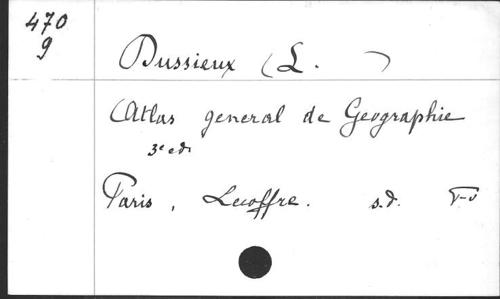 470
9
Dussieux (L. )
Atlas general de Geographie
3e ed.
Paris, Lecoffre. s.d.